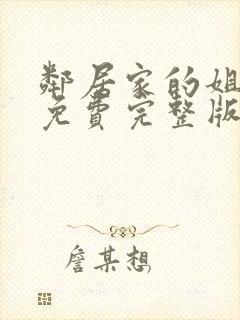 鄰居家的姐
免費完整版
詹某想